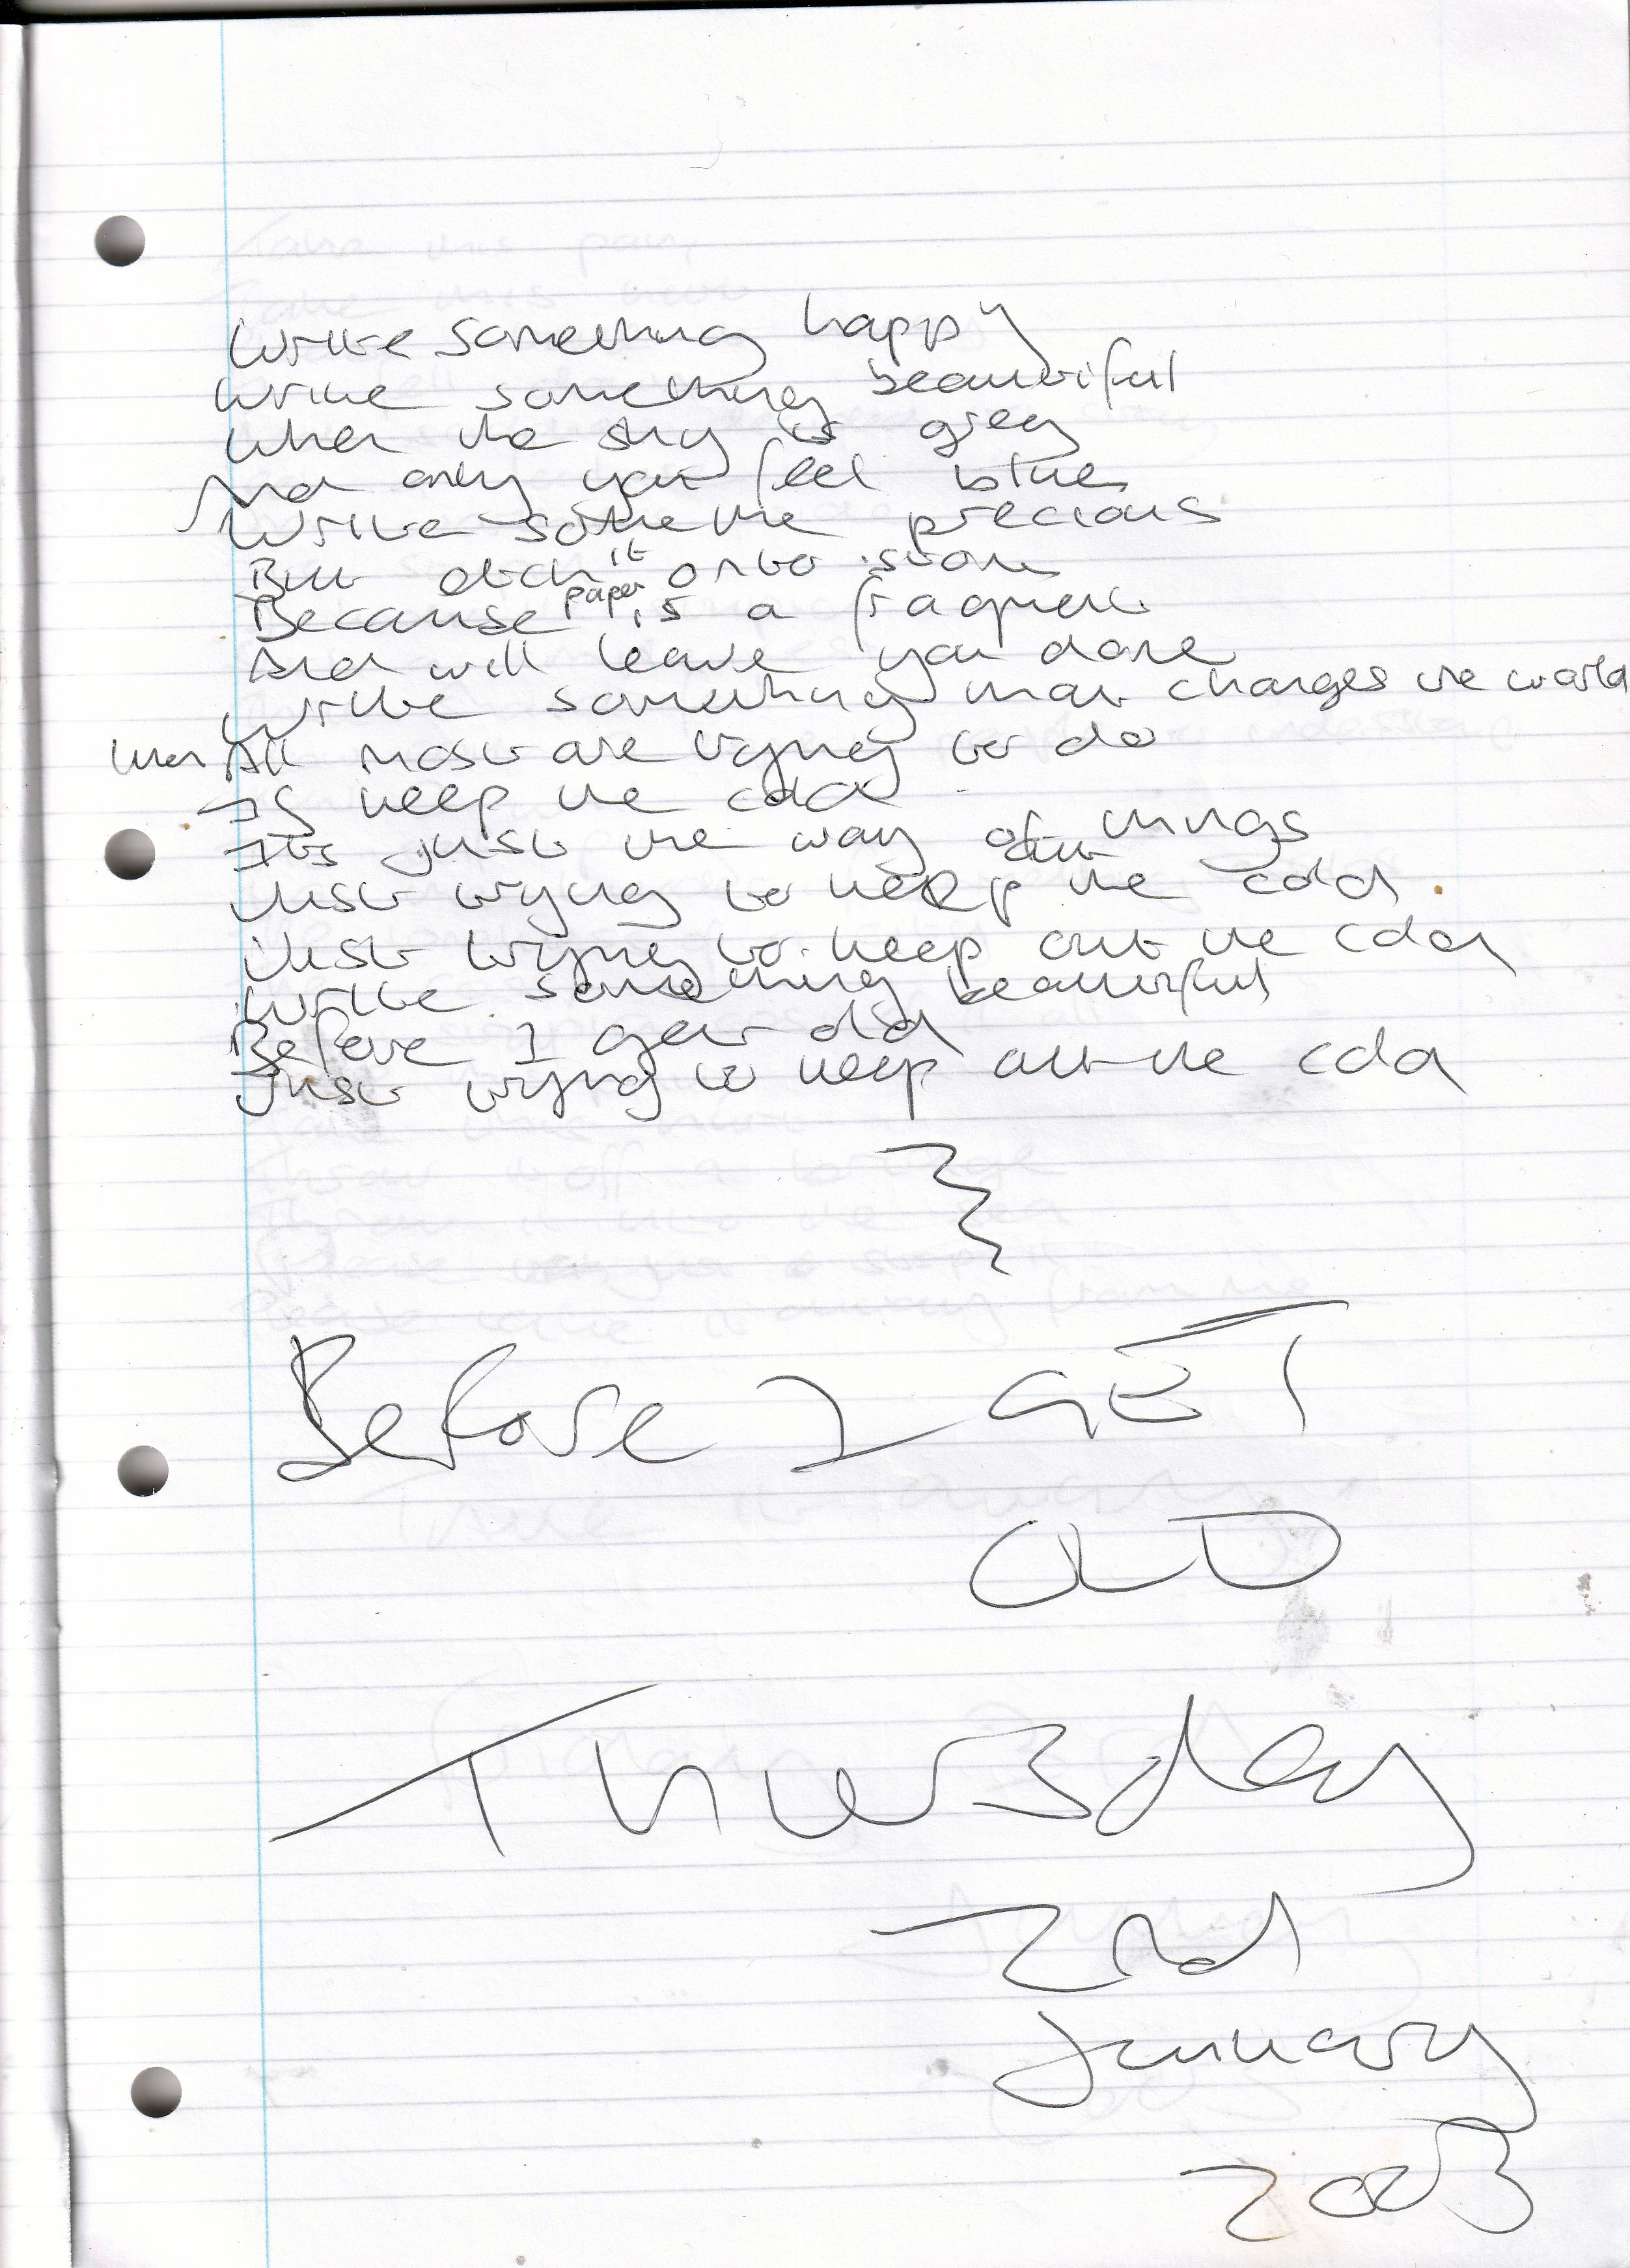 Write something happy
Write something beautiful
When the sky is grey
And only you feel blue
Write somethe precious
But etch it onto stone
Because paper is a fragment
And will leave you done
Write something that changes the world
When All most are trying to do
Is keep the cold
Its just the way of things
Just trying to keep the cold
out
Just trying to keep out the cold
Write something beautiful
Before I get old
Just trying to keep out the cold
Before I GET
OLD
Thursday
2nd
January
2003